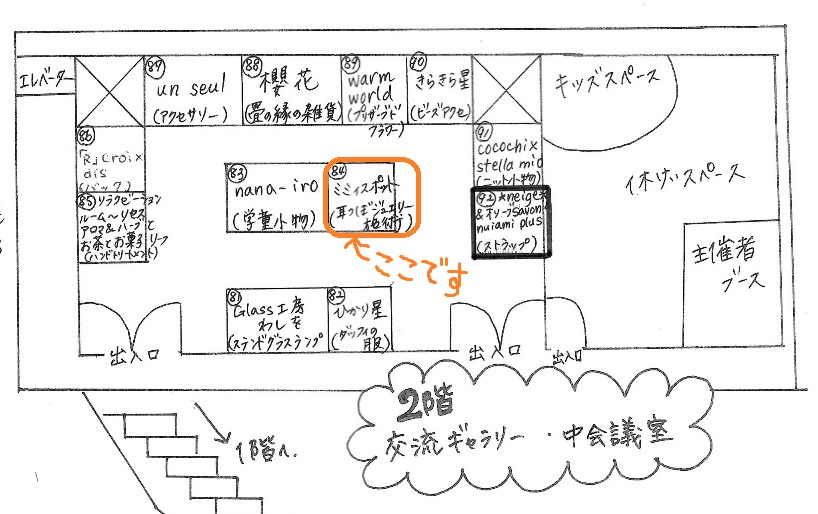 エレベーター
87
un seul
(アクセサリー)
88
櫻花
(畳の縁の雑貨)
89
warm
world
(プリザーブド
フラワー)
90
きらきら星
(ビーズアクセ)
キッズスペース
86
「R」croix
dis
(バック)
91
cocochi×
stella mio
(ニット小物)
休けいスペース
85 リラクゼーション
ルーム〜リセス
アロマ&ハーブと
お茶とお菓子リーフ
(ハンドトリートメント)
83
nana-iro
(学童小物)
84
ミミィスポット
(耳つぼジュエリー
施術)
92 *neige*
&オリーブsavon
nuiami plus
(ストラップ)
主催者
ブース
←ここです
81
Glass工房
わしを
(ステンドグラスランプ)
82
ひかり星
(ダッフィの
服)
出入口
出入口
出入口
1階へ
2階
交流ギャラリー・中会議室